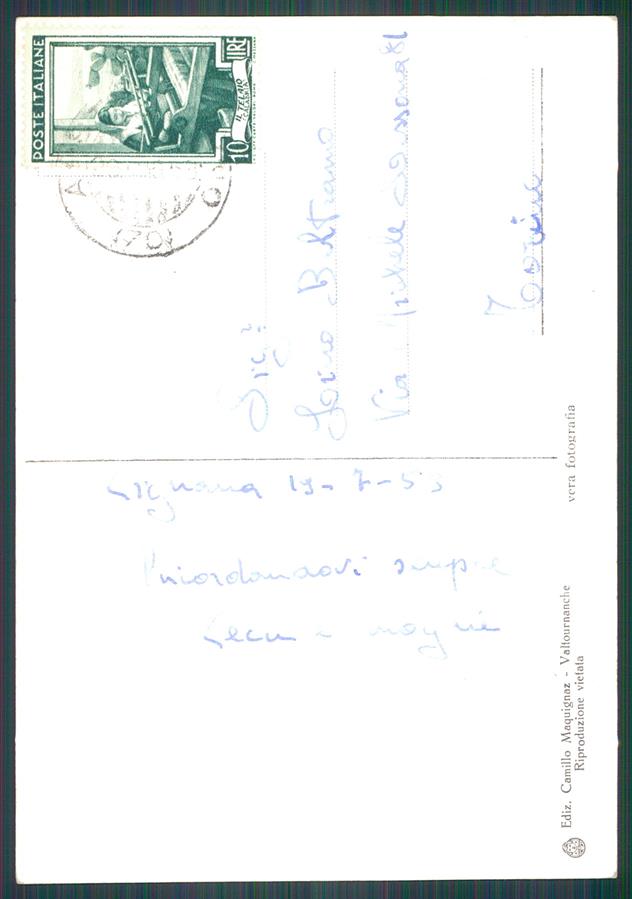 POSTE ITALIANE
LIRE
10
IL TELAIO
CALABRIA
Sig.
Via Michele Lessona 81
Torino
19-7-53
Ricordandovi sempre
e moglie
vera fotografia
Ediz. Camillo Maquignaz - Valtournanche
Riproduzione vietata